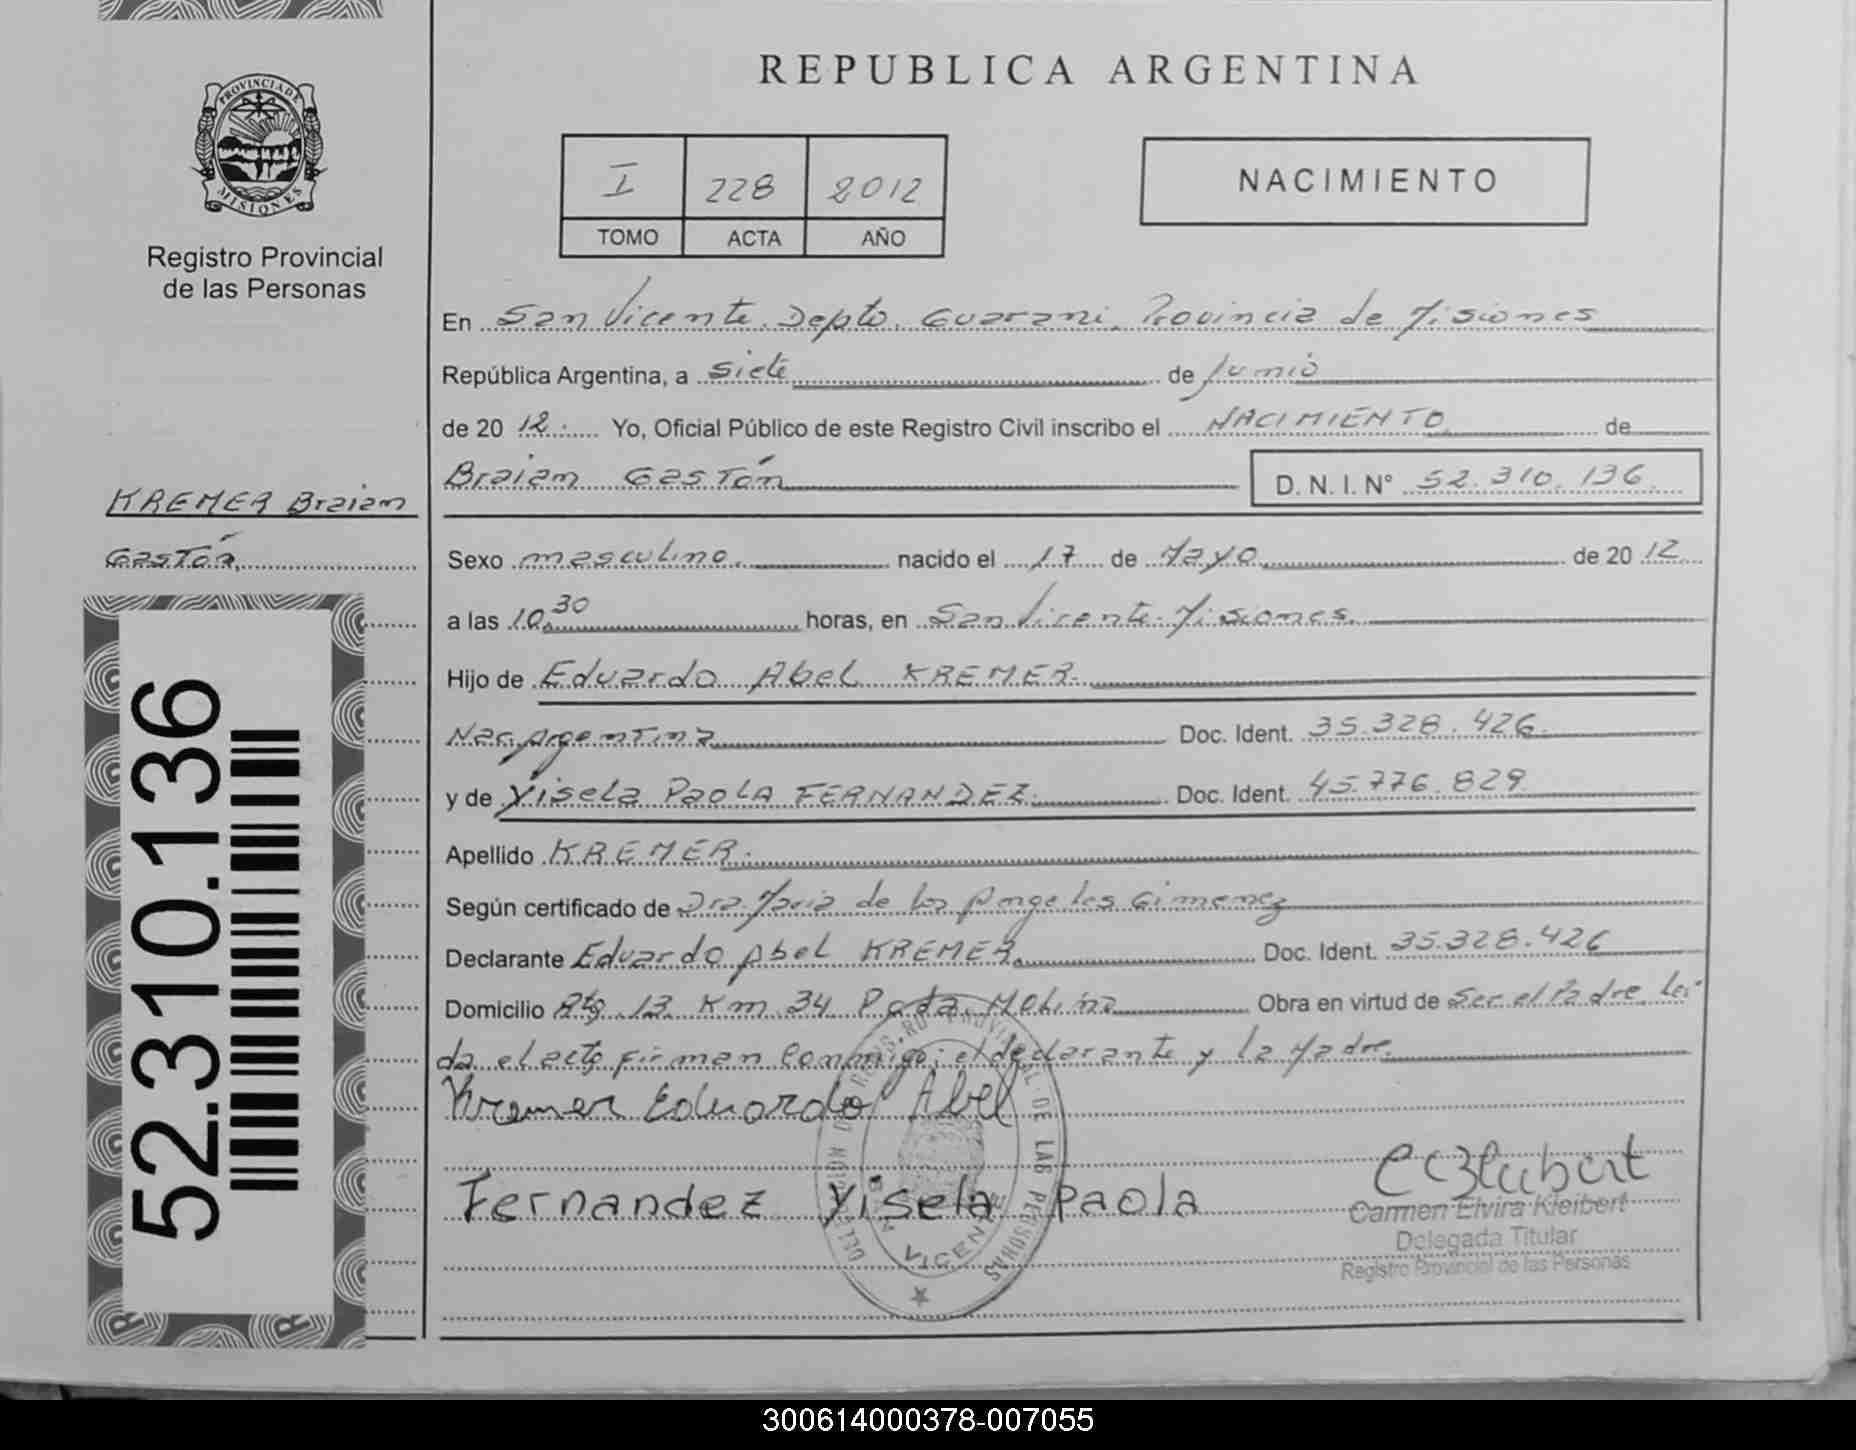 PROVINCIA DE
MISIONES
Registro Provincial
de las Personas
KREMER Braian
Gastón
52.310.136
REPUBLICA ARGENTINA
I 228 2012
TOMO ACTA AÑO
NACIMIENTO
En San Vicente, Depto. Guarani, Provincia de Misiones
República Argentina, a siete de Junio
de 20 12. Yo, Oficial Público de este Registro Civil inscribo el NACIMIENTO de
Braian Gastón D. N. I. N° 52.310.136
Sexo masculino. nacido el 17 de Mayo de 20 12
a las 10,30 horas, en San Vicente-Misiones.
Hijo de Eduardo Abel KREMER.
Nac. Argentina Doc. Ident. 35.328.426
y de Yisela Paola FERNANDEZ. Doc. Ident. 45.776.829
Apellido KREMER.
Según certificado de Dra. Maria de los Angeles Gimenez
Declarante Eduardo Abel KREMER. Doc. Ident. 35.328.426
Domicilio Rta. 13 Km 34 Pcda. Molino Obra en virtud de Ser el Padre. Lei
da el acto firman conmigo; el declarante y la Madre.
Kremer Eduardo Abel
Fernandez Yisela Paola
Carmen Elvira Kleibert
Delegada Titular
Registro Provincial de las Personas
300614000378-007055